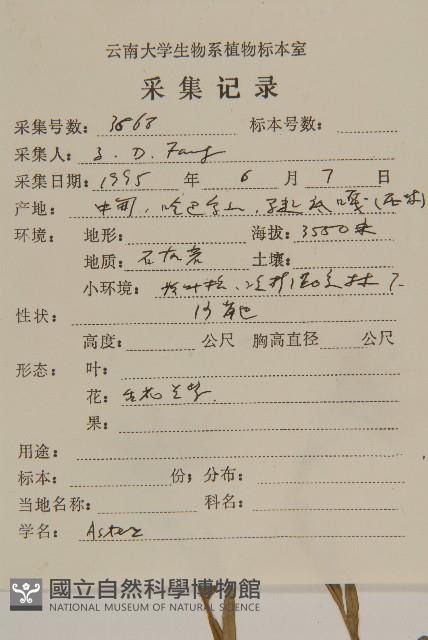 云南大学生物系植物标本室
采集记录
采集号数： 3568 标本号数：
采集人： Z. D. Fang
采集日期： 1995 年 6 月 7 日
产地： 中甸，哈巴雪山
环境： 地形： 海拔： 3550米
地质： 石灰岩 土壤：
小环境：
性状：
高度： 公尺 胸高直径 公尺
形态： 叶：
花：
果：
用途：
标本： 份； 分布：
当地名称： 科名：
学名： Aster
國立自然科學博物館
NATIONAL MUSEUM OF NATURAL SCIENCE